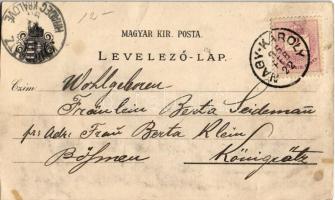 HRADEC KRÁLOVÉ
12-
MAGYAR KIR. POSTA.
LEVELEZŐ-LAP.
NAGY-KÁROLY
Czím: Wohlgeboren
Fräulein Berta Seidemann
pr: Adr: Frau Berta Klein
Böhmen Königrätz